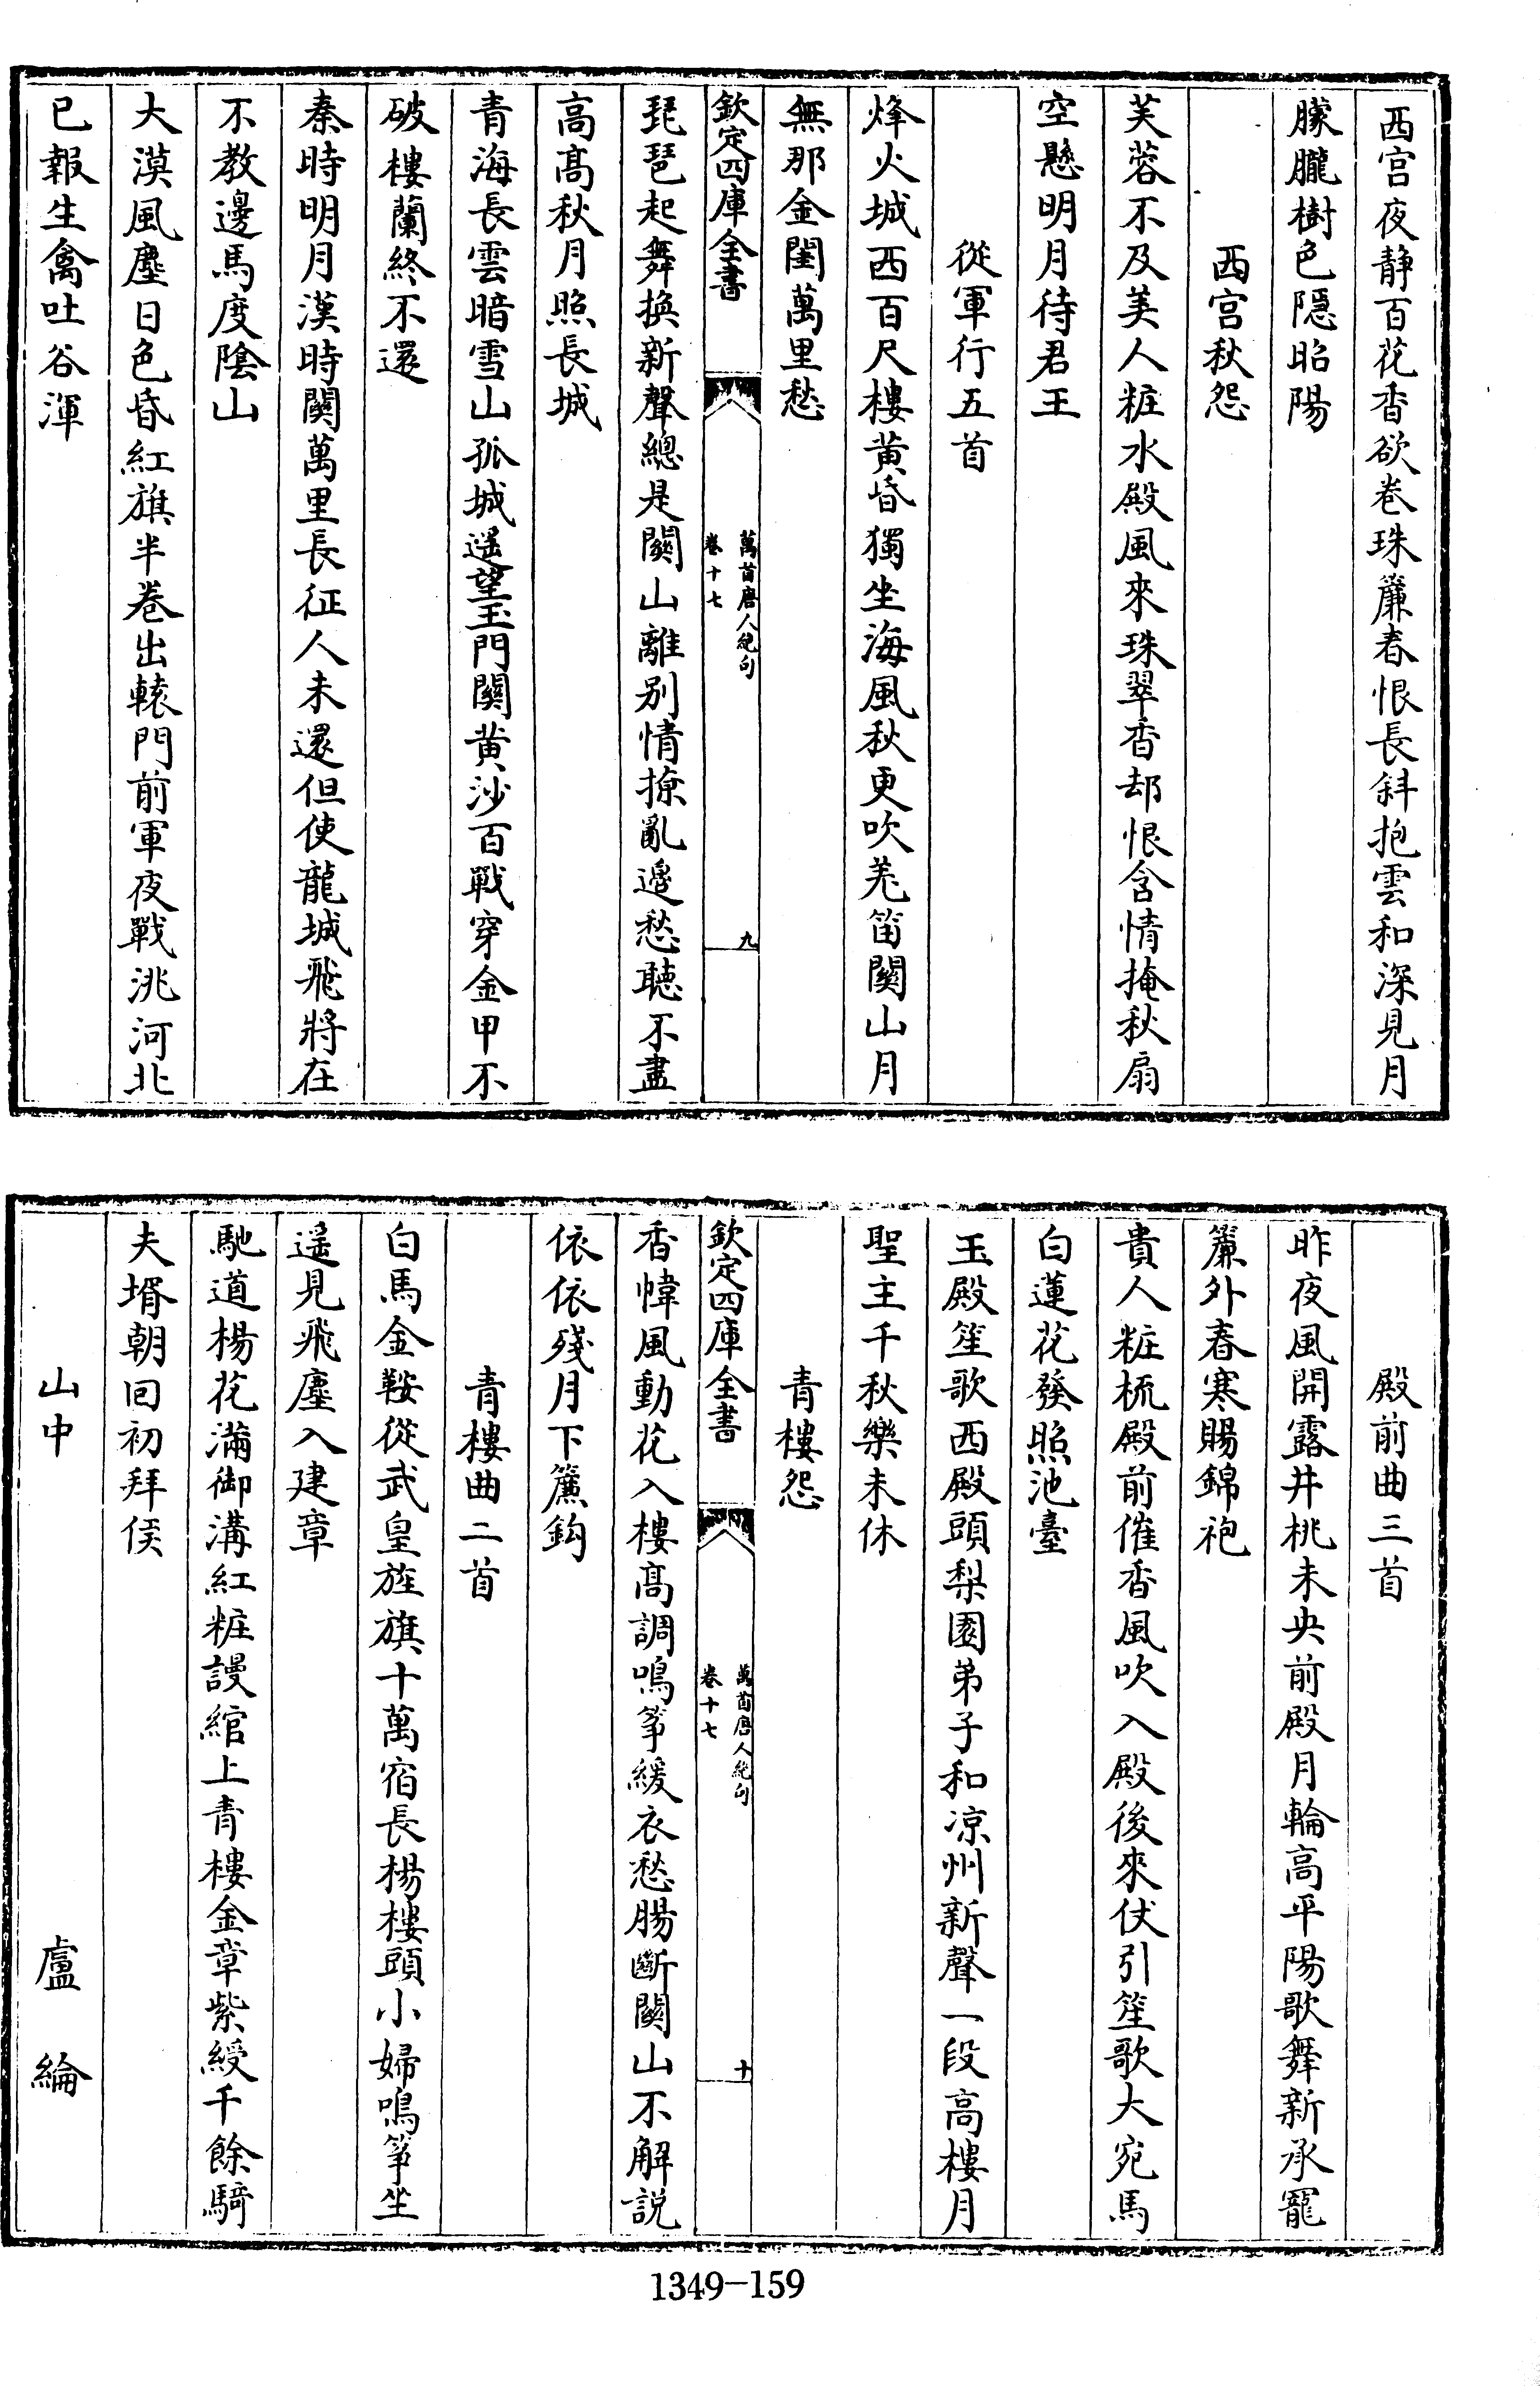 西宫夜静百花香欲巻珠簾春恨長斜抱雲和深見月
朦朧樹色隱昭陽
西宫秋怨
芙蓉不及美人粧水殿風來珠翠香却恨含情掩秋扇
空懸明月待君王
從軍行五首
烽火城西百尺樓黄昏獨坐海風秋更吹羌笛闗山月
無那金閨萬里愁
欽定四庫全書
萬首唐人絶句
卷十七
九
琵琶起舞换新聲總是闗山離别情撩亂邉愁聽不盡
高髙秋月照長城
青海長雲暗雪山孤城遥望玉門闗黄沙百戰穿金甲不
破樓蘭終不還
秦時明月漢時闗萬里長征人未還但使龍城飛將在
不教邊馬度隂山
大漠風塵日色昏紅旗半巻出轅門前軍夜戰洮河北
已報生禽吐谷渾
殿前曲三首
昨夜風開露井桃未央前殿月輪高平陽歌舞新承寵
簾外春寒賜錦袍
貴人粧梳殿前催香風吹入殿後來伏引笙歌大宛馬
白蓮花發照池臺
玉殿笙歌西殿頭梨園弟子和凉州新聲一段高樓月
聖主千秋樂未休
青樓怨
欽定四庫全書
萬首唐人絶句
卷十七
十
香幃風動花入樓髙調鳴筝緩衣愁腸斷闗山不解説
依依殘月下簾鈎
青樓曲二首
白馬金鞍從武皇旌旗十萬宿長楊樓頭小婦鳴筝坐
遥見飛塵入建章
馳道楊花滿御溝紅粧謾綰上青樓金章紫綬千餘騎
夫壻朝回初拜侯
山中
盧綸
1349-159